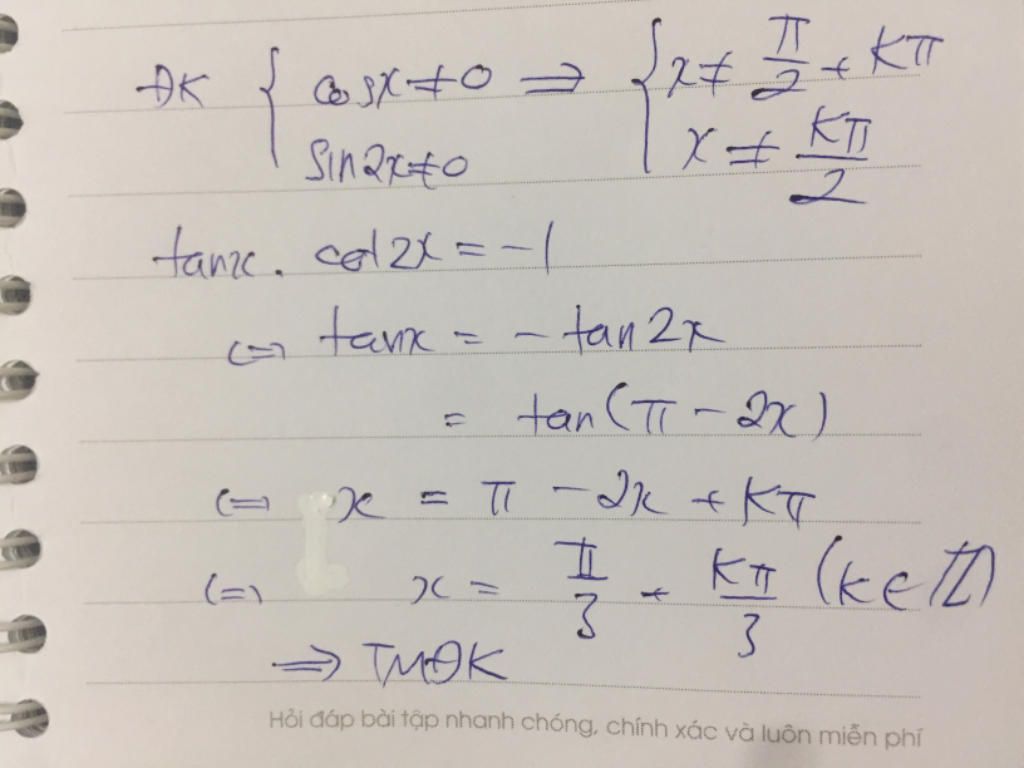 ĐK { cosx ≠ 0 ⇒ { x ≠ π/2 + kπ
sin2x ≠ 0 x ≠ kπ/2
tanx . cot2x = -1
⇔ tanx = - tan2x
= tan(π - 2x)
⇔ x = π - 2x + kπ
⇔ x = π/3 + kπ/3 (k ∈ Z)
⇒ TMĐK
Hỏi đáp bài tập nhanh chóng, chính xác và luôn miễn phí